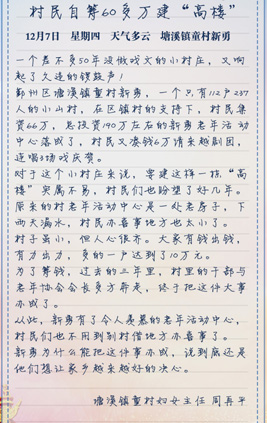 村民自筹60多万建“高楼”
12月7日 星期四 天气多云 塘溪镇童村新勇
一个差不多50年没做戏文的小村庄，又响
起了久违的锣鼓声！
鄞州区塘溪镇童村新勇，一个只有112户237
人的小山村，在区镇村的支持下，村民集
资66万，总投资190万左右的新勇老年活动中
心落成了，村民又凑钱6万请来越剧团，
连唱3场戏庆贺。
对于这个小村庄来说，要建这样一栋“高
楼”实属不易，村民们也盼望了好几年。
原来的村老年活动中心是一处老房子，下
雨天漏水，村民办喜事地方也太小了。
村子虽小，但人心很齐。大家有钱出钱，
有力出力，多的一户达到了10万元。
为了筹钱，过去的三年里，村里的干部与
老年协会会长多方奔走，终于把这件大事
办成了。
从此，新勇有了令人羡慕的老年活动中心，
村民们也不用到别村借地方办喜事了。
新勇为什么能把这件事办成，说到底还是
他们想让家乡越来越好的决心。
塘溪镇童村妇女主任 周再平